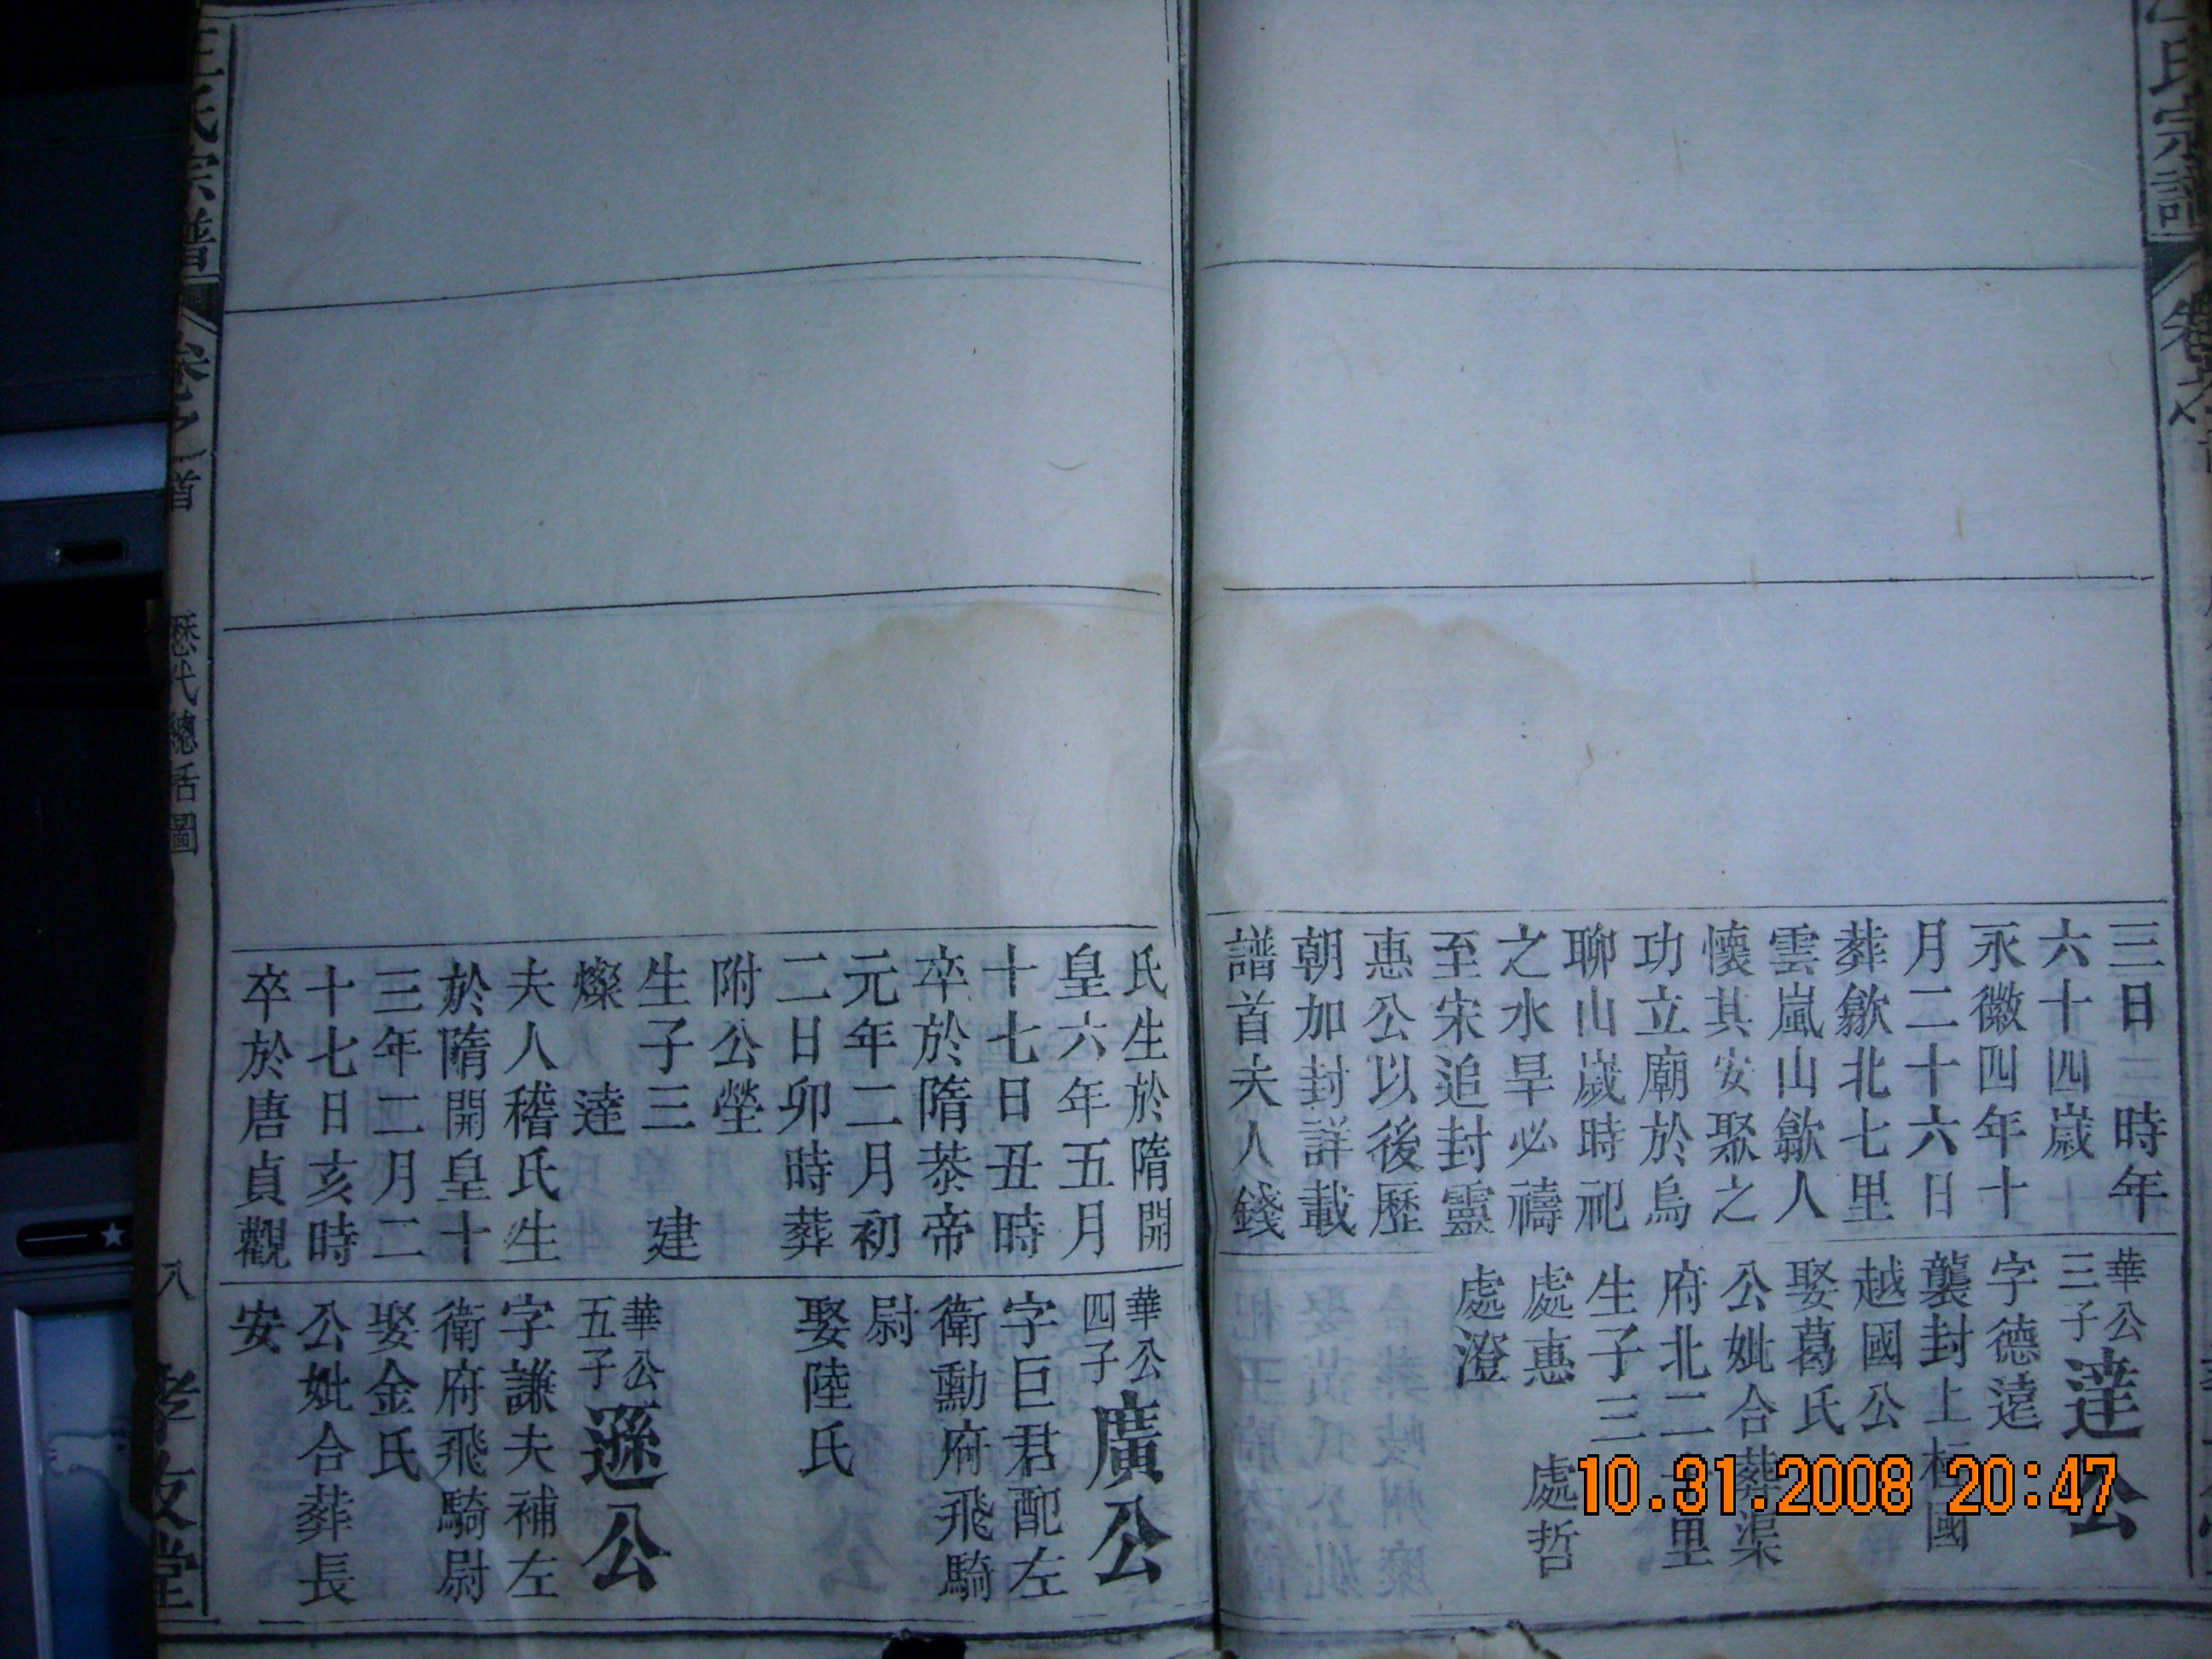 三日三時年
六十四歲
永徽四年十
月二十六日
葬歙北七里
雲嵐山歙人
懷其安聚之
功立廟於烏
聊山歲時祀
之水旱必禱
至宋追封靈
惠公以後歷
朝加封詳載
譜首夫人錢
華公
三子
達公
字德遠
襲封上柱國
越國公
娶葛氏
公妣合葬渠
府北二里
生子三
處哲
處惠
處澄
氏生於隋開
皇六年五月
十七日丑時
卒於隋恭帝
元年二月初
二日卯時葬
附公塋
生子三 建
燦 達
夫人稽氏生
於隋開皇十
三年二月二
十七日亥時
卒於唐貞觀
華公
四子
廣公
字巨君配左
衛勳府飛騎
尉
娶陸氏
華公
五子
遜公
字謙夫補左
衛府飛騎尉
娶金氏
公妣合葬長
安
氏宗譜 卷之首 歷代總括圖 八 孝友堂
10.31.2008 20:47